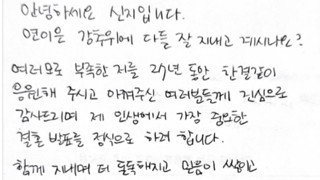 안녕하세요 신지입니다.
연이은 강추위에 다들 잘 지내고 계시나요?
여러모로 부족한 저를 27년 동안 한결같이
응원해 주시고 아껴주신 여러분들께 진심으로
감사드리며 제 인생에서 가장 중요한
결혼 발표를 정식으로 하려 합니다.
함께 지내며 더 돈독해지고 믿음이 쌓이고